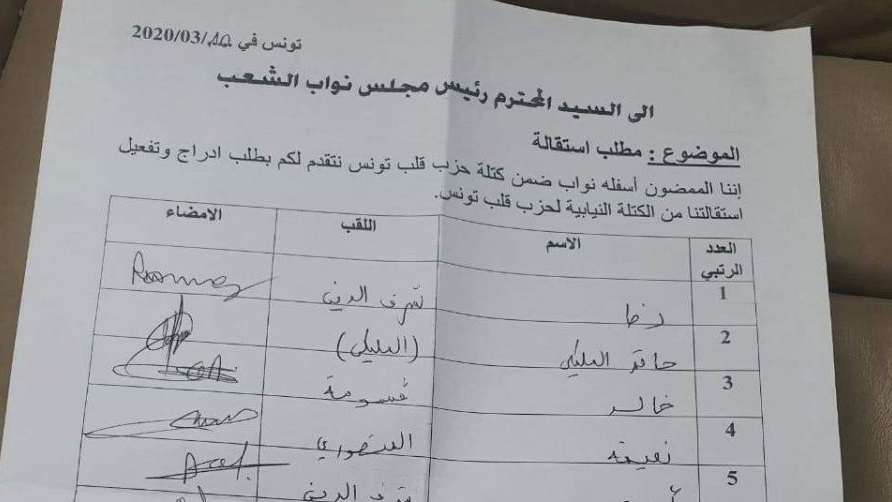 تونس في 2020/03/10
الى السيد المحترم رئيس مجلس نواب الشعب
الموضوع : مطلب استقالة
إننا الممضون أسفله نواب ضمن كتلة حزب قلب تونس نتقدم لكم بطلب ادراج وتفعيل
استقالتنا من الكتلة النيابية لحزب قلب تونس.
العدد الرتبي الاسم اللقب الامضاء
1 رضا شرف الدين
2 حاتم المليكي (المليكي)
3 خالد قسومة
4 نعيمة المنصوري
5 شرف الدين